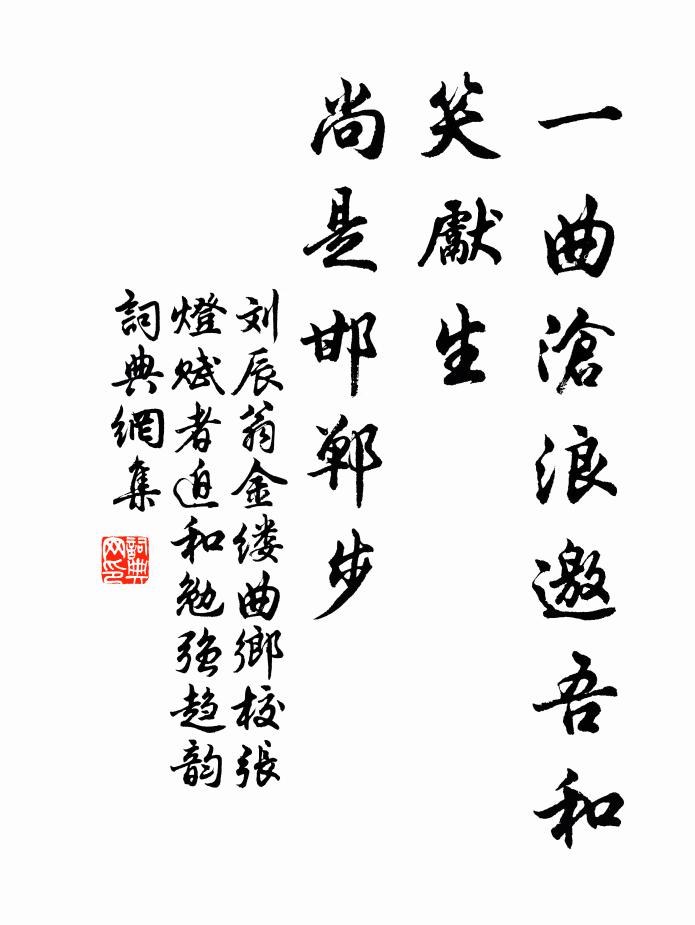 一曲滄浪邀吾和
笑獻生
尚是邯鄲步
刘辰翁金缕曲鄉校張
燈賦者迫和勉強趋韵
詞典網集
詞典网印